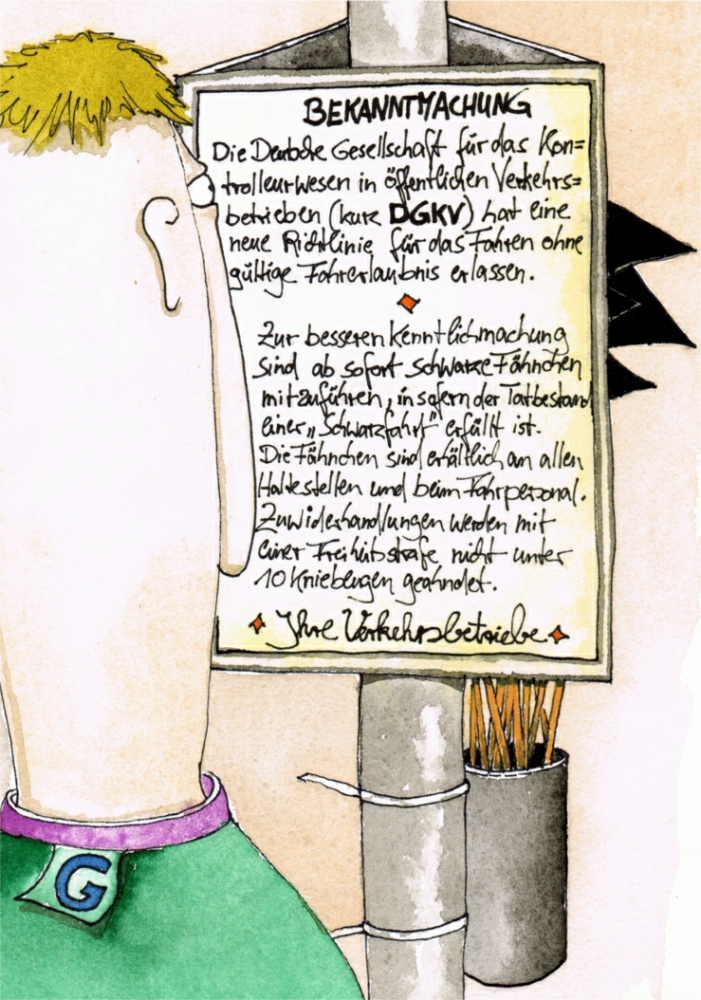 BEKANNTMACHUNG
Die Deutsche Gesellschaft für das Kon=
trolleurwesen in öffentlichen Verkehrs=
betrieben (kurz DGKV) hat eine
neue Richtlinie für das Fahren ohne
gültige Fahrerlaubnis erlassen.
Zur besseren Kenntlichmachung
sind ab sofort schwarze Fähnchen
mitzuführen, insofern der Tatbestand
einer „Schwarzfahrt" erfüllt ist.
Die Fähnchen sind erhältlich an allen
Haltestellen und beim Fahrpersonal.
Zuwiderhandlungen werden mit
einer Freiheitsstrafe nicht unter
10 Kniebeugen geahndet.
Ihre Verkehrsbetriebe
G